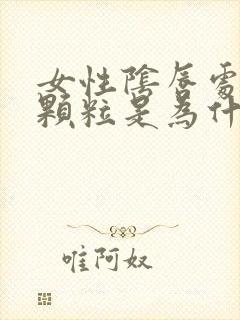 女性陰唇處
顆粒是為什
唯阿奴